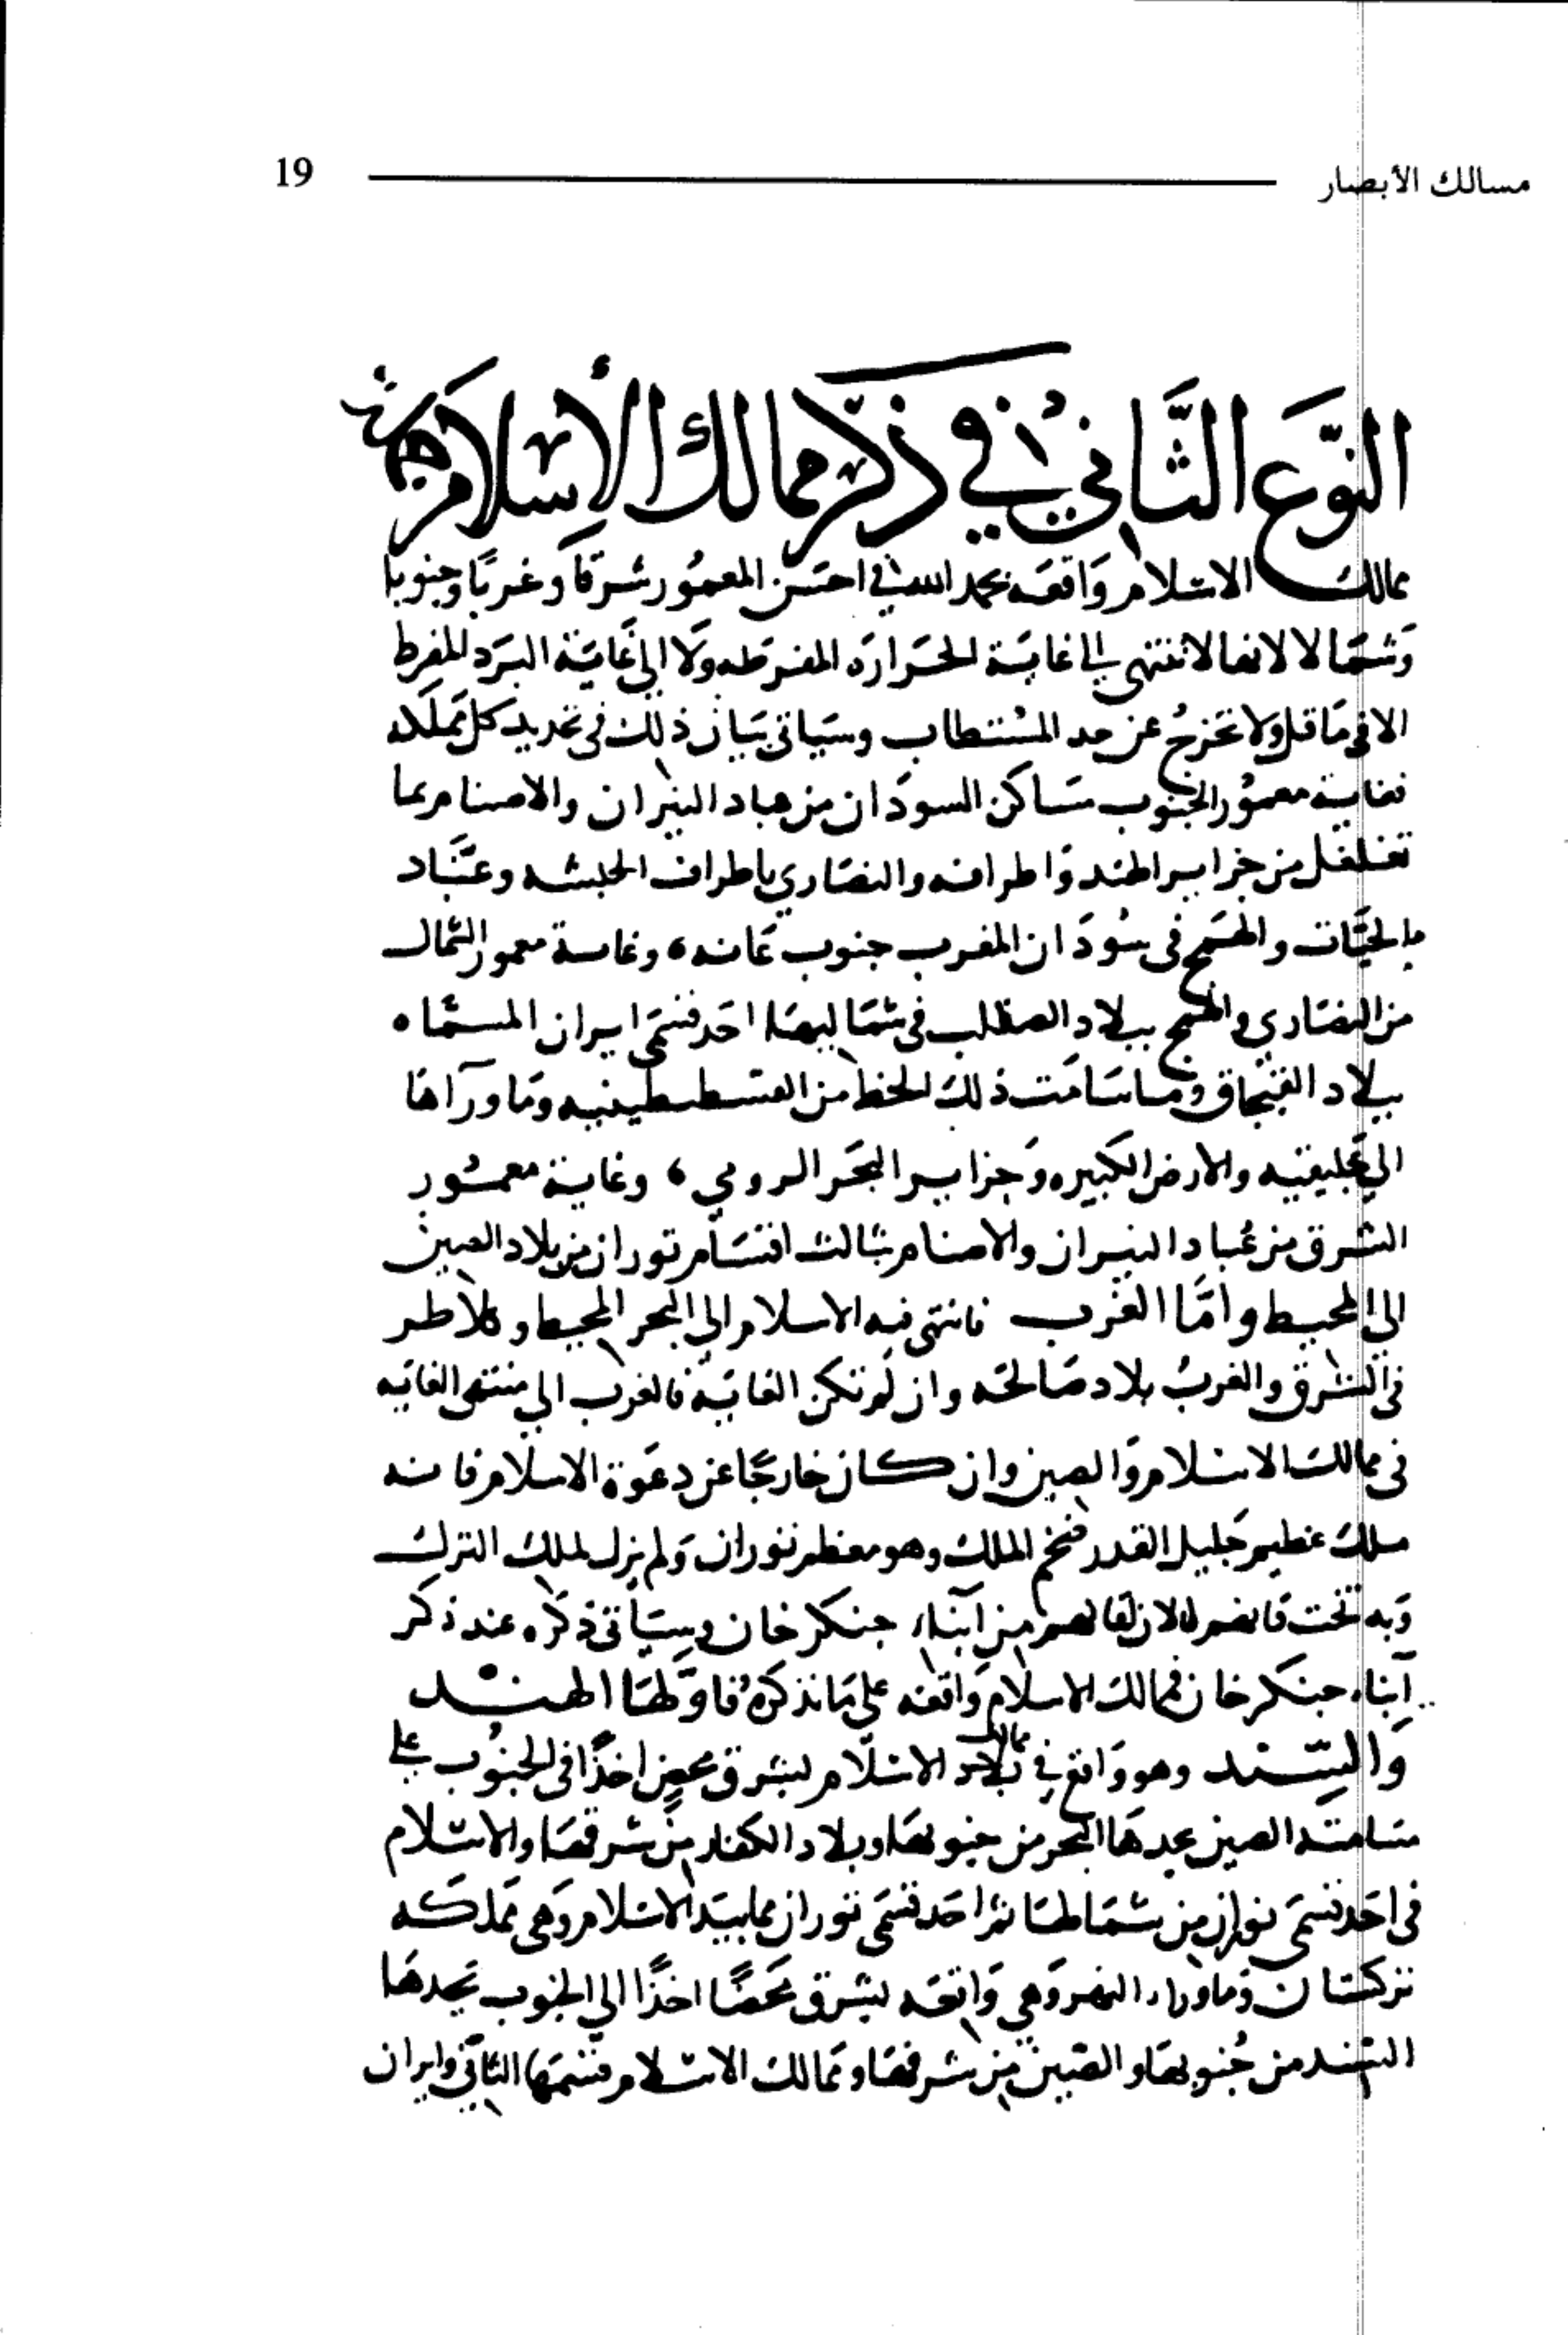 مسالك الأبصار 19
النّوَع الثَّاني في ذكر ممالك الأسلام
ممالك الاسلام وَاقعَه بحمد الله في احسَن المعمُور شرقاً وغربًا وجنوبا
وَشمَالا لانها لا تنتهي الي غايَة الحَرارَه المفرَطه ولَا الي غَايَة البرَد المفرط
الا في مَا قل ولا تخرجُ عن حد المسُتطاب وسيَاتي بيَان ذلك في تحديد كل مملَكه
فغاية معمُور الجنوب مسَاكن السودَان من عباد النيران والاصنام بما
تغلغل من جزاير الهند وَاطرافه والنصَاري باطراف الحبشه وعبَّاد
الحيَّات والهمَج في سُودَان المغرب جنوب غَانه، وغاية معمور الشمال
من النصَاري والهمج ببلاد الصقلب في شمَاليهَا احَد قسمَى ايران المسمَّاه
ببلاد القبجَاق وما سَامَت ذلكَ الخط من القسطنطينيه وَما ورَآهَا
الي جليقيَه والارض الكبيره وَجزاير البحَر الرومي، وغاية معمُور
الشرق من عُباد النيران والاصنام بثالث اقسَام توران من بلاد الصين
الي المحيط وامَّا الغرب فانتهي فيه الاسلام الي البحر المحيط وكلا طر
في الشرق والغربُ بلاد صَالحَه وان لم تكن الغايَة فالغرب الي منتهى الغايَه
في ممالك الاسلام وَالصين وان كان خارجًا عن دعَوة الاسلام فانه
ملك عظيم جَليل القدر فخم الملك وهو معظم توران وَلم يزل لملك الترك
وَبه تخت قانهم الان من آبناء جنكز خان وسيَأتي ذكرَه عند ذكر
آبناء جنكز خان فممالك الاسلام وَاقعه علي مَا نذكرُه فاوّلهَا الهند
وَالسِّند وهو وَاقع في ممالك بلاد الاسَلام لشرق محض اخذًا في الجنُوب علي
مسَامتة الصين يحدهَا البحر من جنوبهَا وبلاد الكفار من شرقهَا والاسلام
في احَد قسمَى توران من شمَالهَا ثم احَد قسمَى توران بما بيَد الاسَلام وَهي مَملكَه
تركستان وَما وراء النهر وَهي وَاقعَه لشرق محَضًا اخذًا الي الجنوب يحدهَا
السند من جُنوبهَا والصّين من شرقهَا وممَالك الاسلام قسمَها الثاني وايران